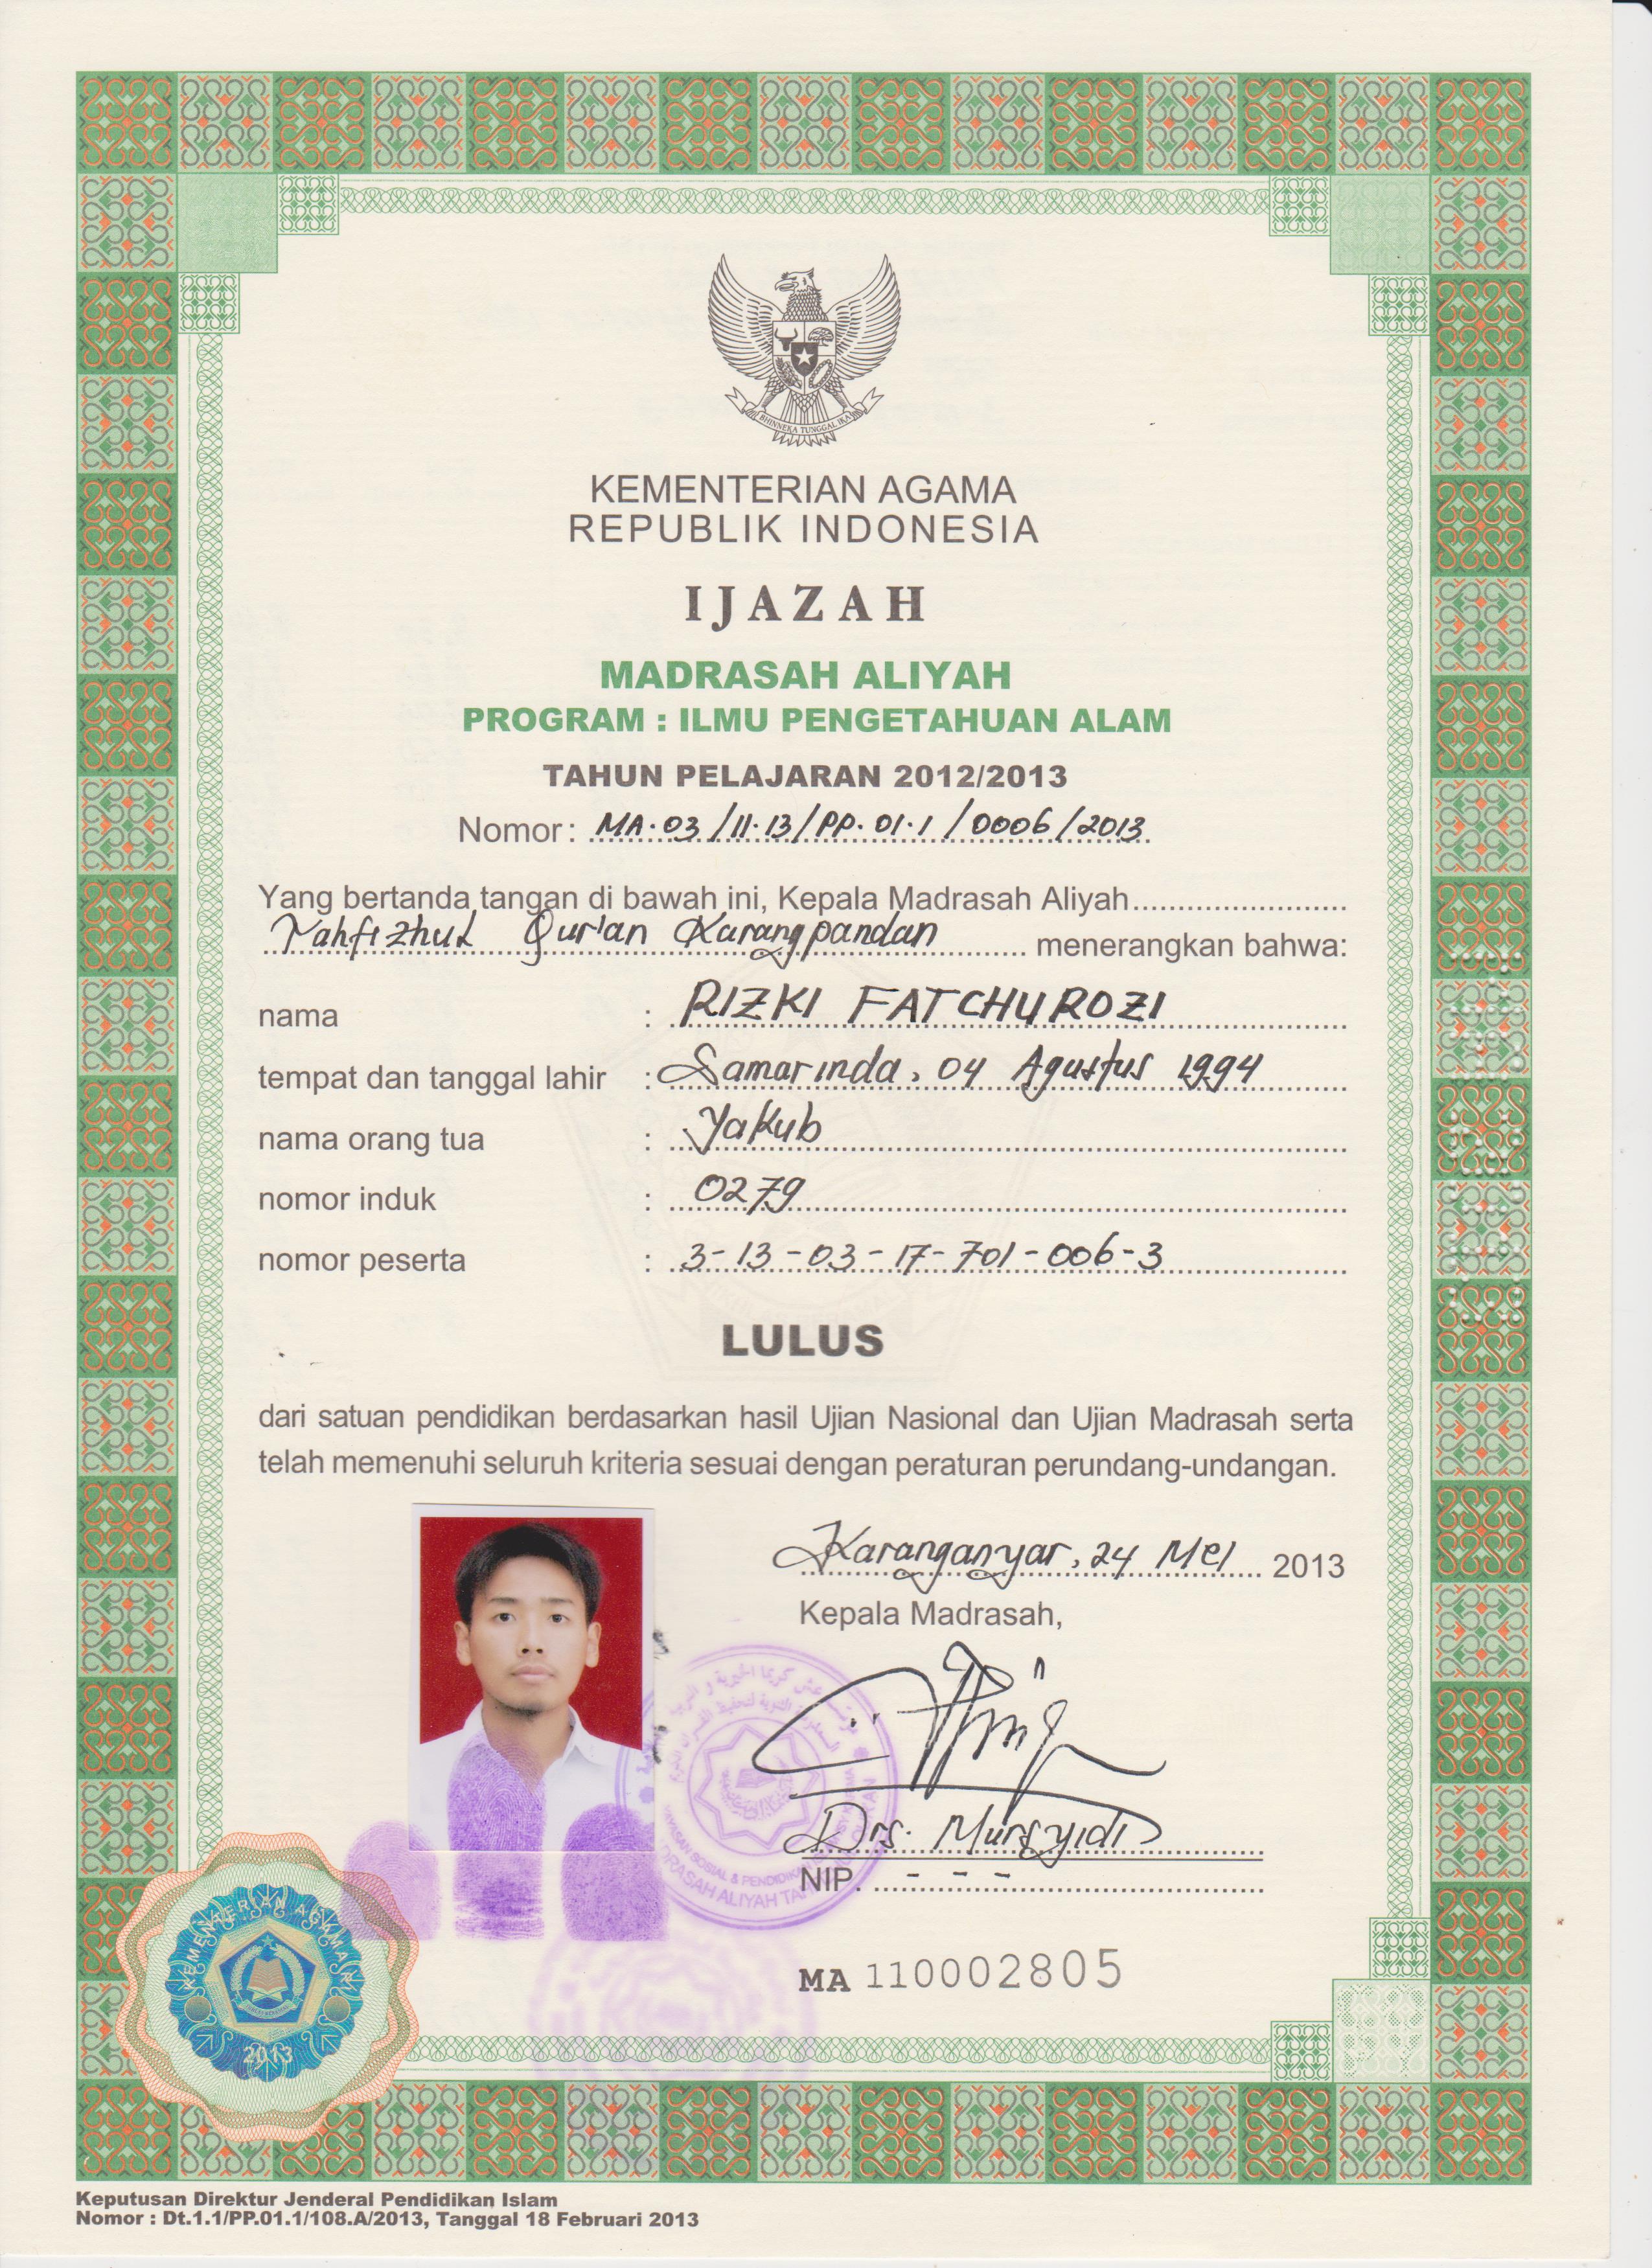 BHINNEKA TUNGGAL IKA
KEMENTERIAN AGAMA
REPUBLIK INDONESIA
IJAZAH
MADRASAH ALIYAH
PROGRAM : ILMU PENGETAHUAN ALAM
TAHUN PELAJARAN 2012/2013
Nomor : MA.03/11.13/PP.01.1/0006/2013
Yang bertanda tangan di bawah ini, Kepala Madrasah Aliyah
Tahfizhul Qur'an Karangpandan menerangkan bahwa:
nama : RIZKI FATCHUROZI
tempat dan tanggal lahir : Samarinda, 04 Agustus 1994
nama orang tua : Yakub
nomor induk : 0279
nomor peserta : 3-13-03-17-701-006-3
LULUS
dari satuan pendidikan berdasarkan hasil Ujian Nasional dan Ujian Madrasah serta
telah memenuhi seluruh kriteria sesuai dengan peraturan perundang-undangan.
Karanganyar, 24 Mei 2013
Kepala Madrasah,
Drs. Mursyidi
NIP. - - -
MA 110002805
KEMENTERIAN AGAMA RI
2013
Keputusan Direktur Jenderal Pendidikan Islam
Nomor : Dt.1.1/PP.01.1/108.A/2013, Tanggal 18 Februari 2013